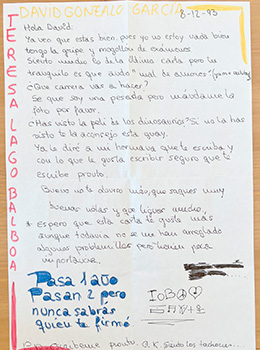 DAVID GONZALO GARCIA
8-12-93
TERESA LAGO BALBOA
Hola David:
Ya veo que estas bien, pues yo no estoy nada bien
tengo la gripe y mogollon de exámenes.
Siento mucho lo de la última carta pero tu
tranquilo es que ando "mal de amores"
¿Que carrera vas a hacer?
Se que soy una pesada pero mándame la
foto por favor.
¿Has visto la peli de los dinosaurios? Si no la has
visto te la aconsejo esta guay.
Ya le diré a mi hermana que te escriba y
con lo que le gusta escribir seguro que te
escribe pronto.
Bueno nota ahorro más, que saques muy
buenas notas y que ligues mucho.
* Espero que esta carta te guste más
aunque todavia no se me han arreglado
algunos problemillas pero tienen poca
importancia.
Pasa 1 año
Pasan 2 pero
nunca sabrás
quien te firmó
Escribeme pronto. O.K. Siento los tachones...